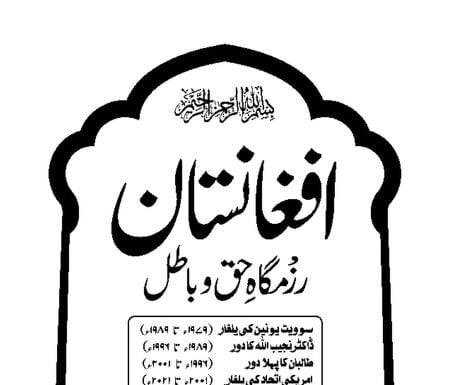 بسم الله الرحمن الرحیم
افغانستان
رزمگاہِ حق و باطل
سوویت یونین کی یلغار (۱۹۷۹ء تا ۱۹۸۹ء)
ڈاکٹر نجیب اللہ کا دور (۱۹۸۹ء تا ۱۹۹۶ء)
طالبان کا پہلا دور (۱۹۹۶ء تا ۲۰۰۱ء)
امریکی اتحاد کی یلغار (۲۰۰۱ء تا ۲۰۲۱ء)